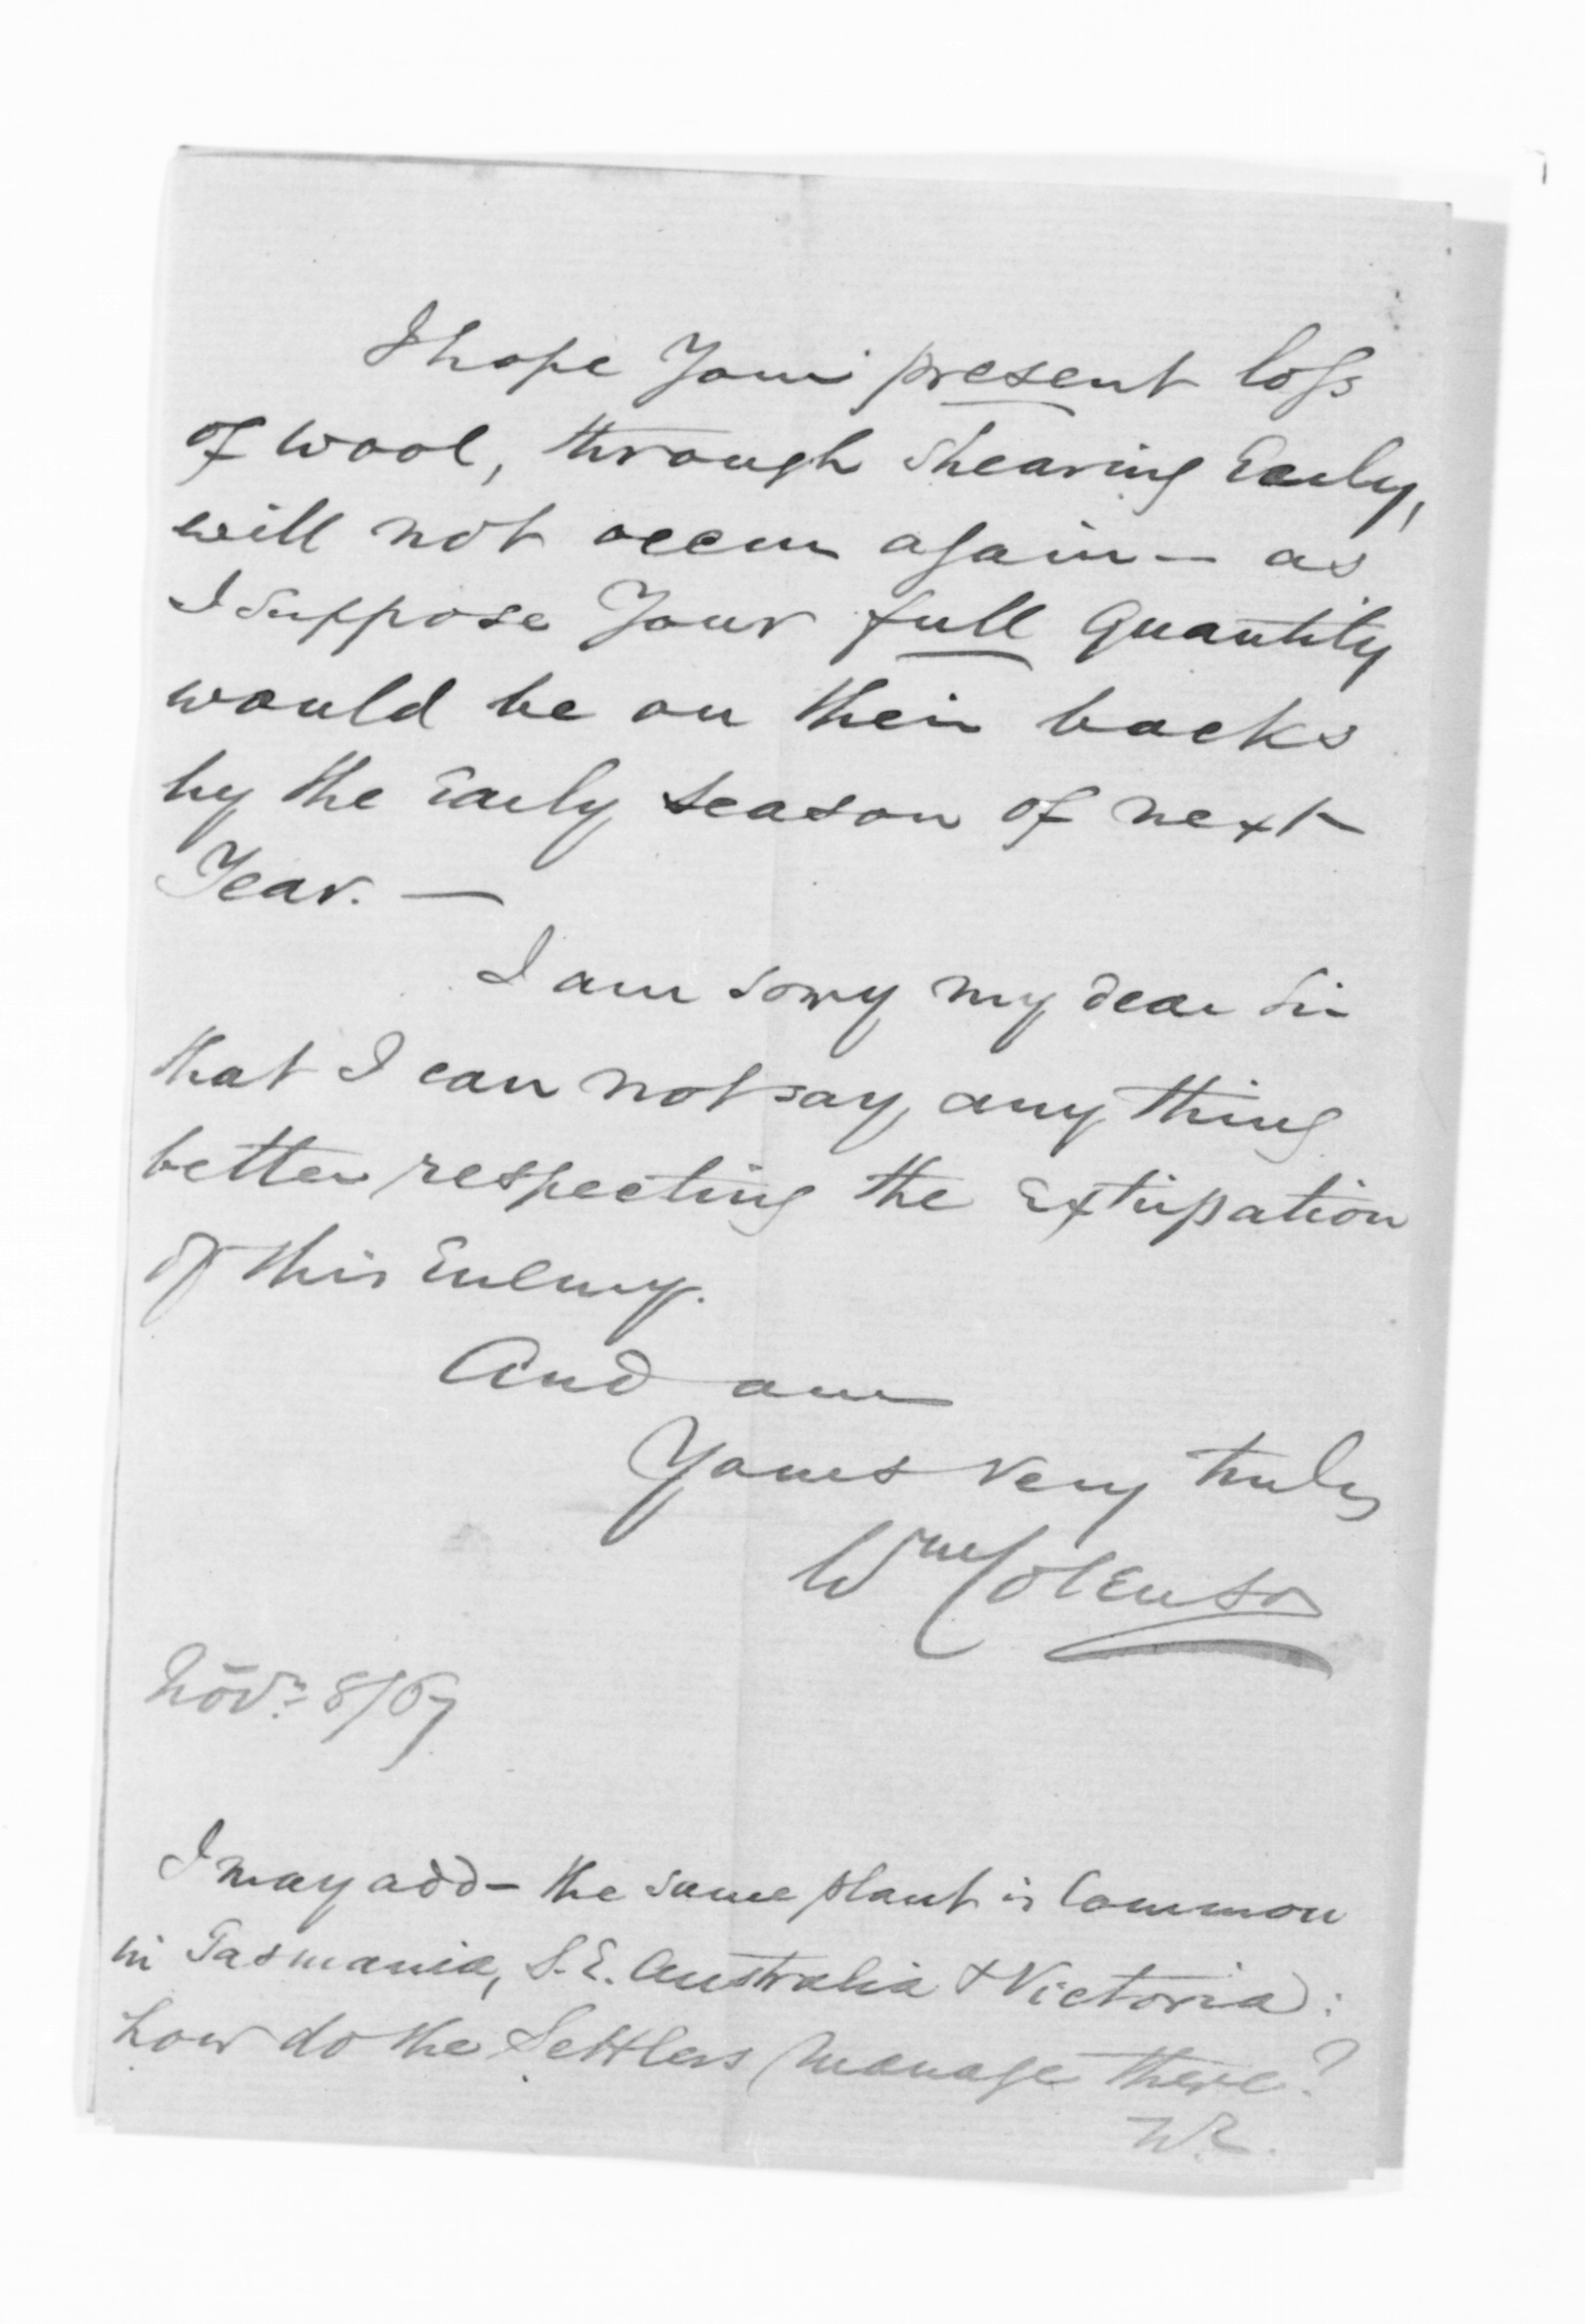 I hope Your present loss
of wool, through shearing Early,
will not occur again — as
I suppose Your full Quantity
would be on their backs
by the Early season of next
Year. —
I am sorry my dear Sir
that I can not say any thing
better respecting the Extirpation
of this Enemy.
And am
Yours very truly
Wm Colenso
Novr. 8/67
I may add – the same plant is Common
in Tasmania, S.E. Australia & Victoria:
how do the Settlers manage there?
W.C.